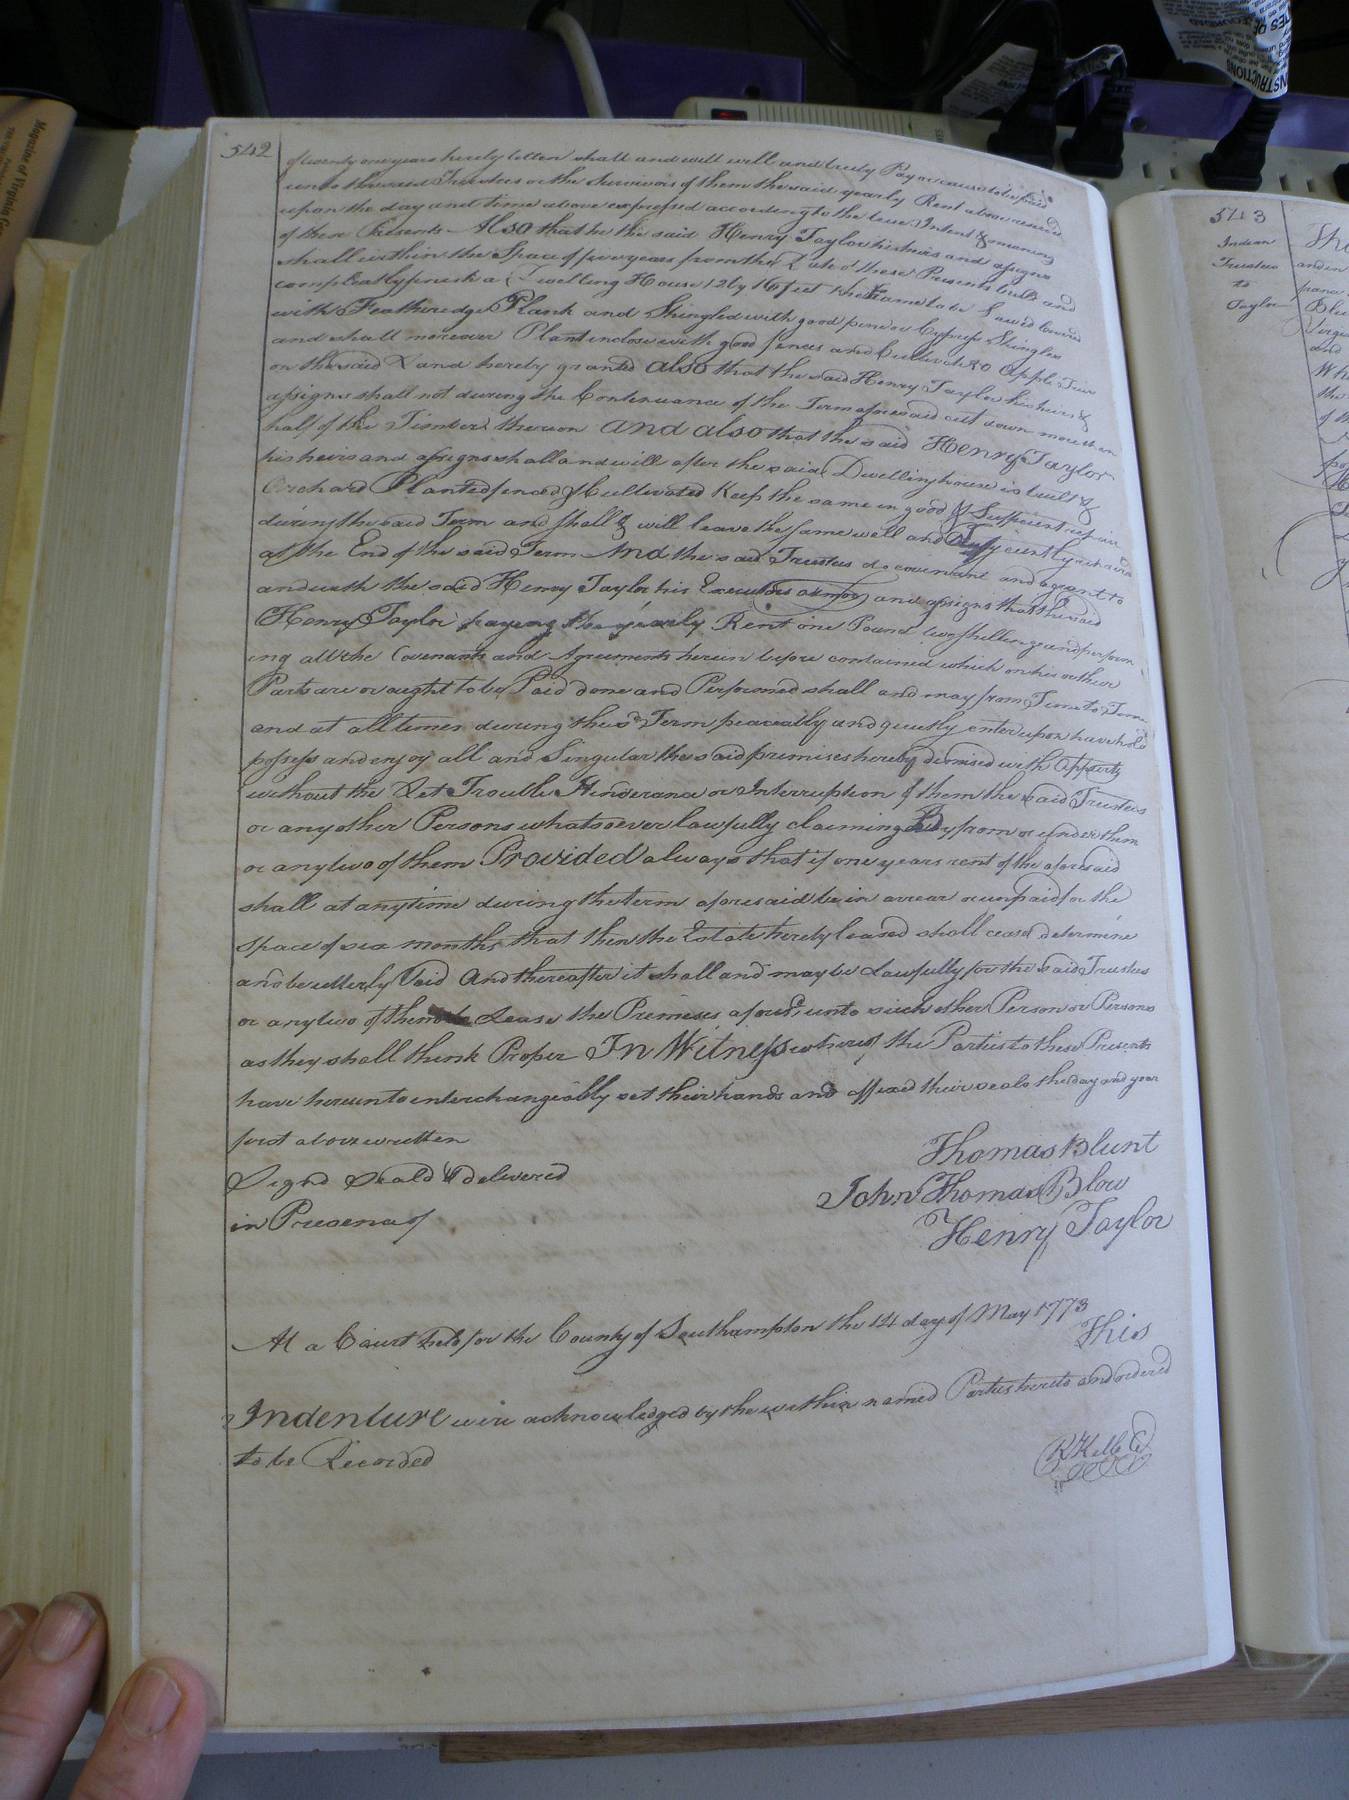 542
of twenty one years hereby letten shall and will well and truly Pay or cause to be paid
unto the said Trustees or the Survivors of them the said yearly Rent above reserved
upon the day and time above expressed according to the true Intent & meaning
of these Presents Also that he the said Henry Taylor his heirs and assigns
shall within the Space of years from the Date of these Presents build and
compleatly finish a Dwelling House 12 by 16 feet the frame to be Sawed Covered
with Featheredge Plank and Shingled with good pine or Cypress Shingles
and shall moreover Plant inclose with good fences and Cultivate Apple Trees
on the said Land hereby granted also that the said Henry Taylor his heirs &
assigns shall not during the Continuance of the Term aforesaid cut down more than
half of the Timber thereon and also that the said Henry Taylor
his heirs and assigns shall and will after the said Dwelling house is built &
Orchard Planted fenced & Cultivated Keep the same in good & Sufficient repair
during the said Term and shall & will leave the same well and Sufficiently repaired
at the End of the said Term And the said Trustees do covenant and agrant to
and with the said Henry Taylor his Executors admors and assigns that the said
Henry Taylor paying the yearly Rent one Pound two shillings and perform
ing all the Covenants and Agreements herein before contained which on his or their
Parts are or ought to be Paid done and Performed shall and may from Time to Time
and at all times during the sd Term peaceably and quietly enter upon have hold
possess and enjoy all and Singular the said premises hereby demised with Appurts
without the Let Trouble Hinderance or Interruption of them the said Trustees
or any other Persons whatsoever lawfully claiming By from or under them
or any two of them Provided always that if one years rent of the aforesaid
shall at any time during the term aforesaid be in arrear or unpaid for the
space of six months that then the Estate hereby leased shall cease determine
and be utterly Void And thereafter it shall and may be Lawfully for the said Trustees
or any two of them Lease the Premises aforsd. unto such other Person or Persons
as they shall think Proper In Witness whereof the Parties to these Presents
have hereunto interchangeably set their hands and affixed their seals the day and year
first above written
Signd Seald & delivered
in Presence of
Thomas Blunt
John Thomas Blow
Henry Taylor
At a Court held for the County of Southampton the 14 day of May 1773
This
Indenture were acknowledged by the within named Parties hereto and ordered
to be Recorded
543
Indian
Trustees
to
Taylor
Magazine of Virginia